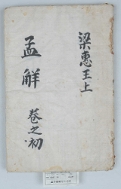 梁惠王上
孟解 卷之初